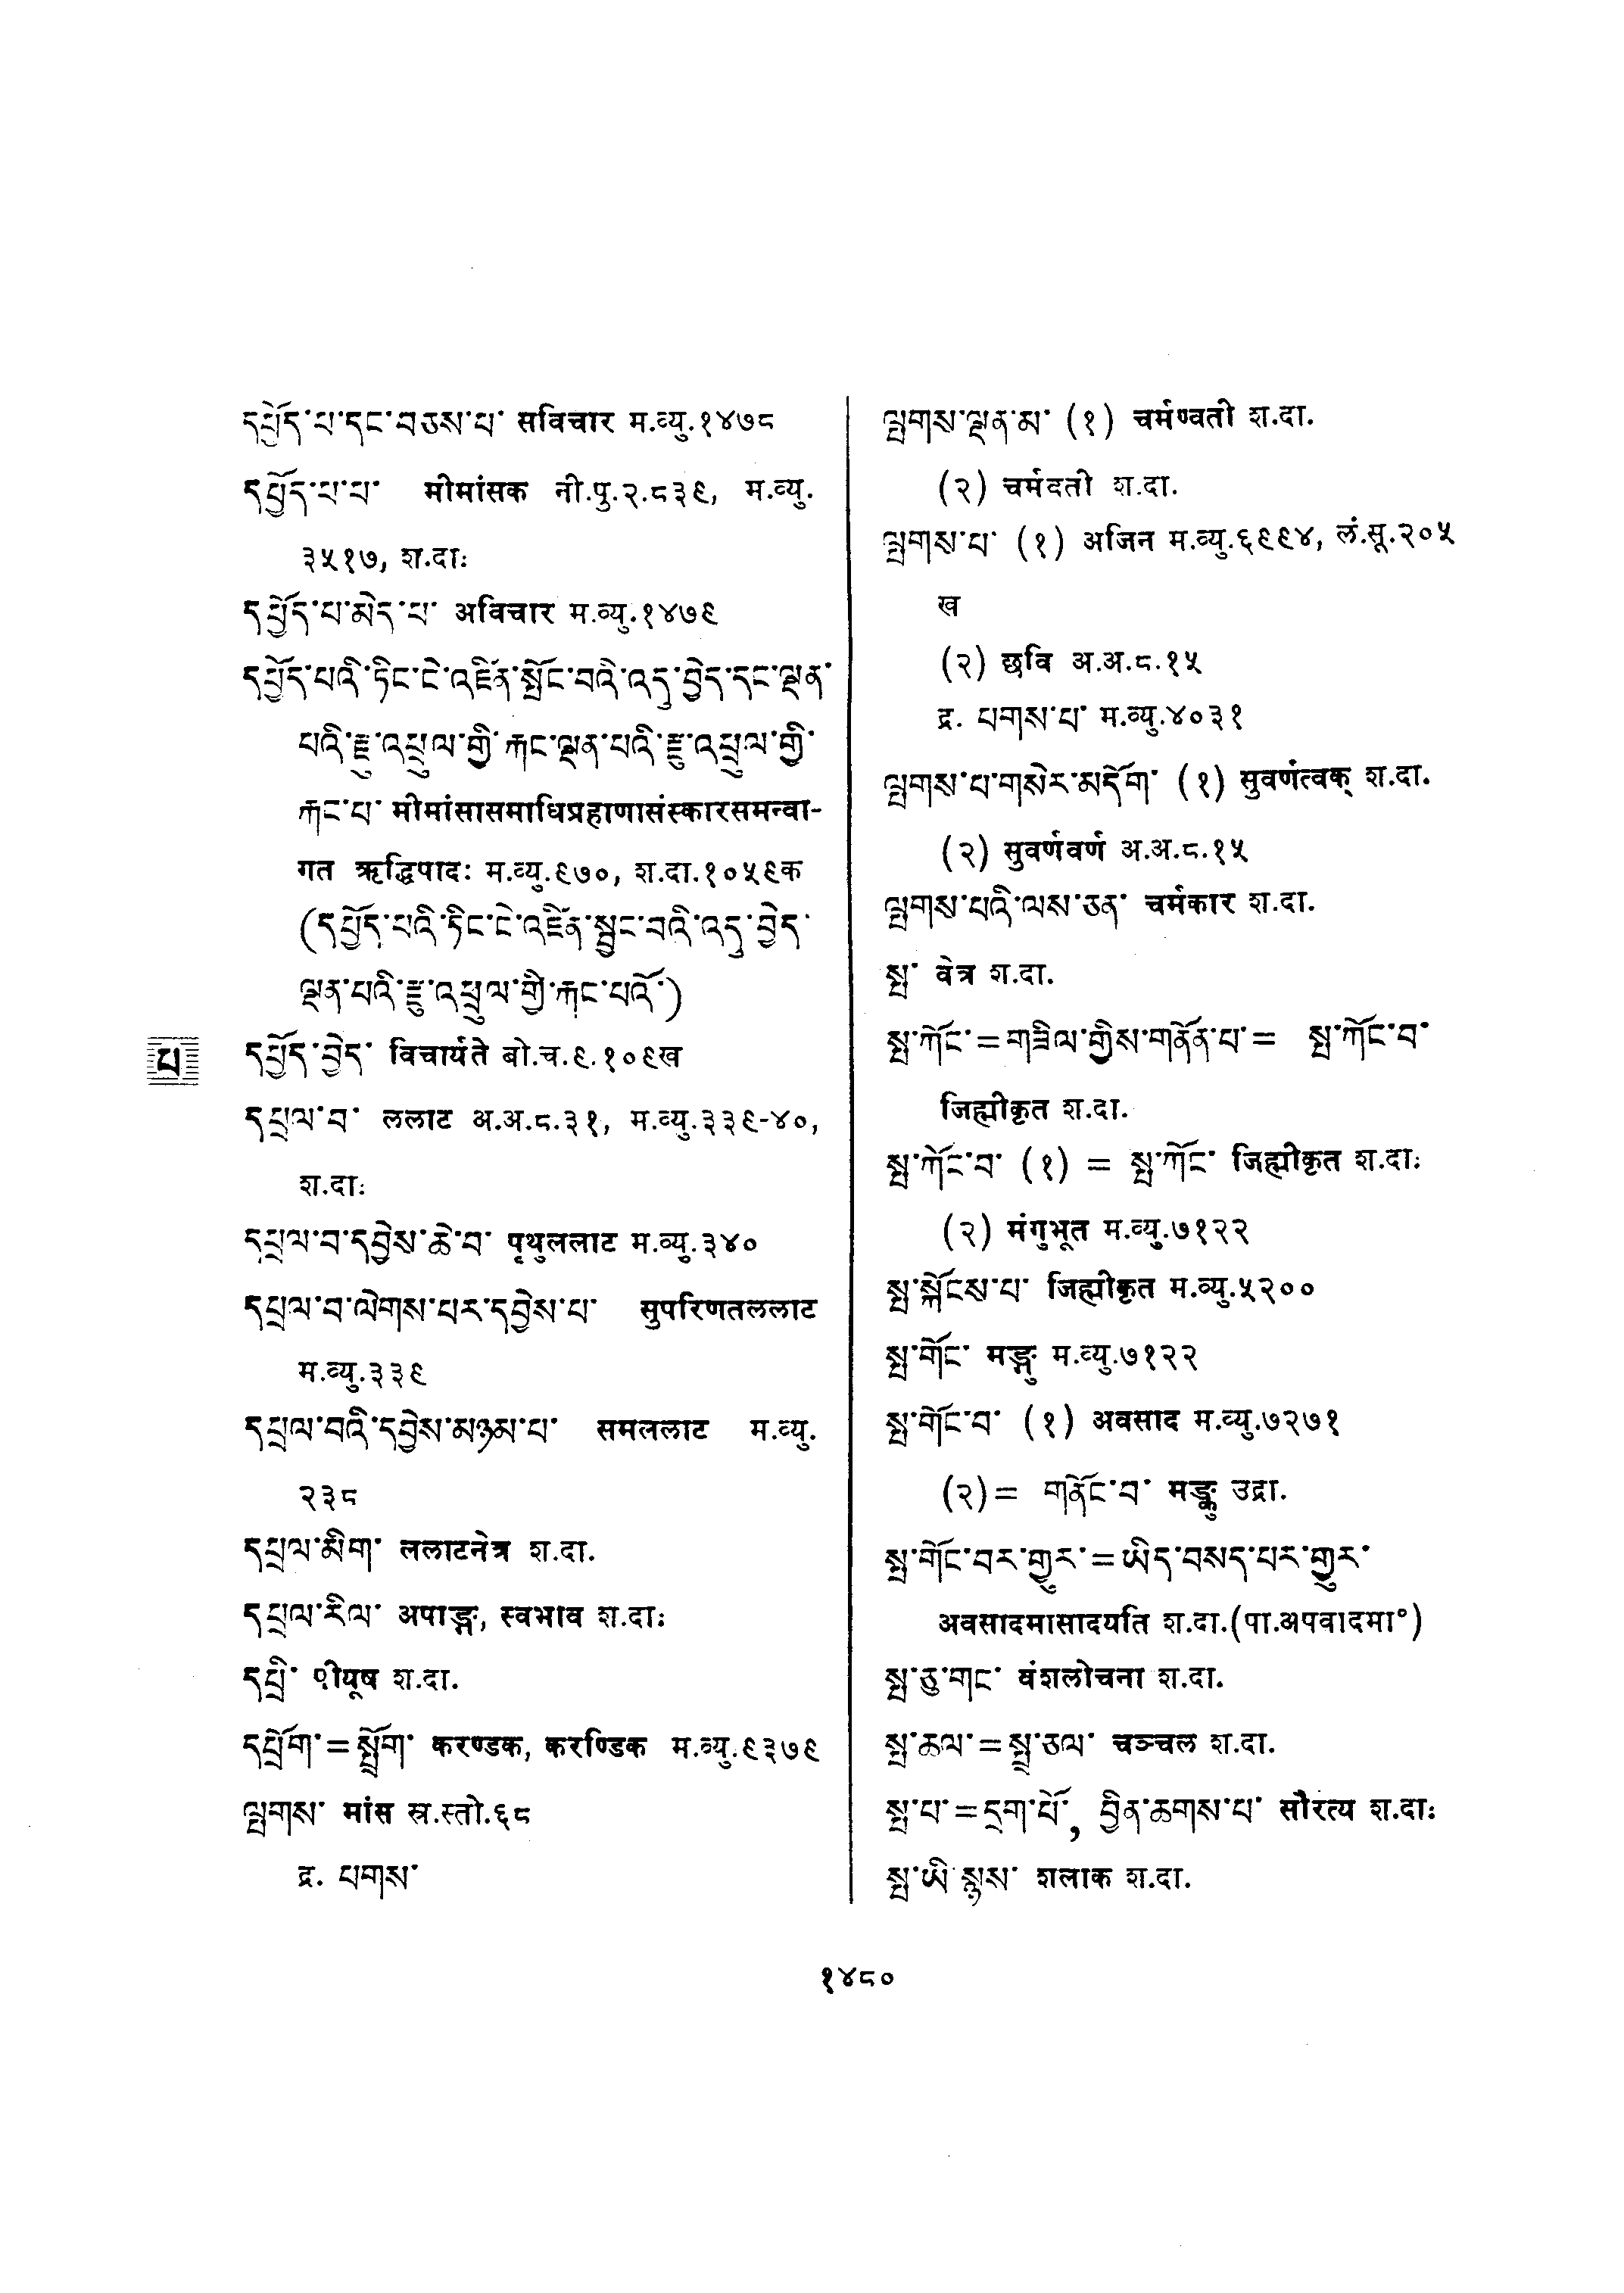 དཔྱོད་པ་དང་བཅས་པ་ सविचार म.व्यु.१४७८
དཔྱོད་པ་པ་ मीमांसक नी.पु.२.८३९, म.व्यु.
३५१७, श.दाः
དཔྱོད་པ་མེད་པ་ अविचार म.व्यु.१४७९
དཔྱོད་པའི་ཏིང་ངེ་འཛིན་སྤོང་བའི་འདུ་བྱེད་དང་ལྡན་
པའི་རྫུ་འཕྲུལ་གྱི་རྐང་ལྡན་པའི་རྫུ་འཕྲུལ་གྱི་
རྐང་པ་ मीमांसासमाधिप्रहाणासंस्कारसमन्वा-
गत ऋद्धिपादः म.व्यु.९७०, श.दा.१०५९क
(དཔྱོད་པའི་ཏིང་ངེ་འཛིན་སྤྱང་བའི་འདུ་བྱེད་
ལྡན་པའི་རྫུ་འཕྲུལ་གྱི་རྐང་པའོ་)
པ
དཔྱོད་བྱེད་ विचार्यते बो.च.९.१०९ख
དཔྲལ་བ་ ललाट अ.अ.८.३१, म.व्यु.३३९-४०,
श.दाः
དཔྲལ་བ་དབྱེས་ཆེ་བ་ पृथुललाट म.व्यु.३४०
དཔྲལ་བ་ལེགས་པར་དབྱེས་པ་ सुपरिणतललाट
म.व्यु.३३९
དཔྲལ་བའི་དབྱེས་མཉམ་པ་ समललाट म.व्यु.
२३८
དཔྲལ་མིག་ ललाटनेत्र श.दा.
དཔྲལ་རིལ་ अपाङ्ग, स्वभाव श.दाः
དཔྲི་ पीयूष श.दा.
དཔྲོག་=སྤྲོག་ करण्डक, करण्डिक म.व्यु.९३७९
ལྤགས་ मांस स्र.स्तो.६८
द्र. པགས་
ལྤགས་ལྡན་མ་ (१) चर्मण्वती श.दा.
(२) चर्मदती श.दा.
ལྤགས་པ་ (१) अजिन म.व्यु.६९९४, लं.सू.२०५
ख
(२) छवि अ.अ.८.१५
द्र. པགས་པ་ म.व्यु.४०३१
ལྤགས་པ་གསེར་མདོག་ (१) सुवर्णत्वक् श.दा.
(२) सुवर्णवर्ण अ.अ.८.१५
ལྤགས་པའི་ལས་ཅན་ चर्मकार श.दा.
སྤ་ वेत्र श.दा.
སྤ་ཀོང་=གཟིལ་གྱིས་གནོན་པ་= སྤ་ཀོང་བ་
जिह्मीकृत श.दा.
སྤ་ཀོང་བ་ (१) = སྤ་ཀོང་ जिह्मीकृत श.दाः
(२) मंगुभूत म.व्यु.७१२२
སྤ་སྐོངས་པ་ जिह्मीकृत म.व्यु.५२००
སྤ་གོང་ मङ्गु म.व्यु.७१२२
སྤ་གོང་བ་ (१) अवसाद म.व्यु.७२७१
(२)= གནོང་བ་ मङ्कु उद्रा.
སྤ་གོང་བར་གྱུར་=ཡིད་བསད་པར་གྱུར་
अवसादमासादयति श.दा.(पा.अपवादमा°)
སྤ་ཅུ་གང་ वंशलोचना श.दा.
སྤ་ཆལ་=སྤྲ་ཅལ་ चञ्चल श.दा.
སྤ་པ་=དྲག་པོ་, བྱིན་ཆགས་པ་ सौरत्य श.दाः
སྤ་ཡི་སྙས་ शलाक श.दा.
१४८०